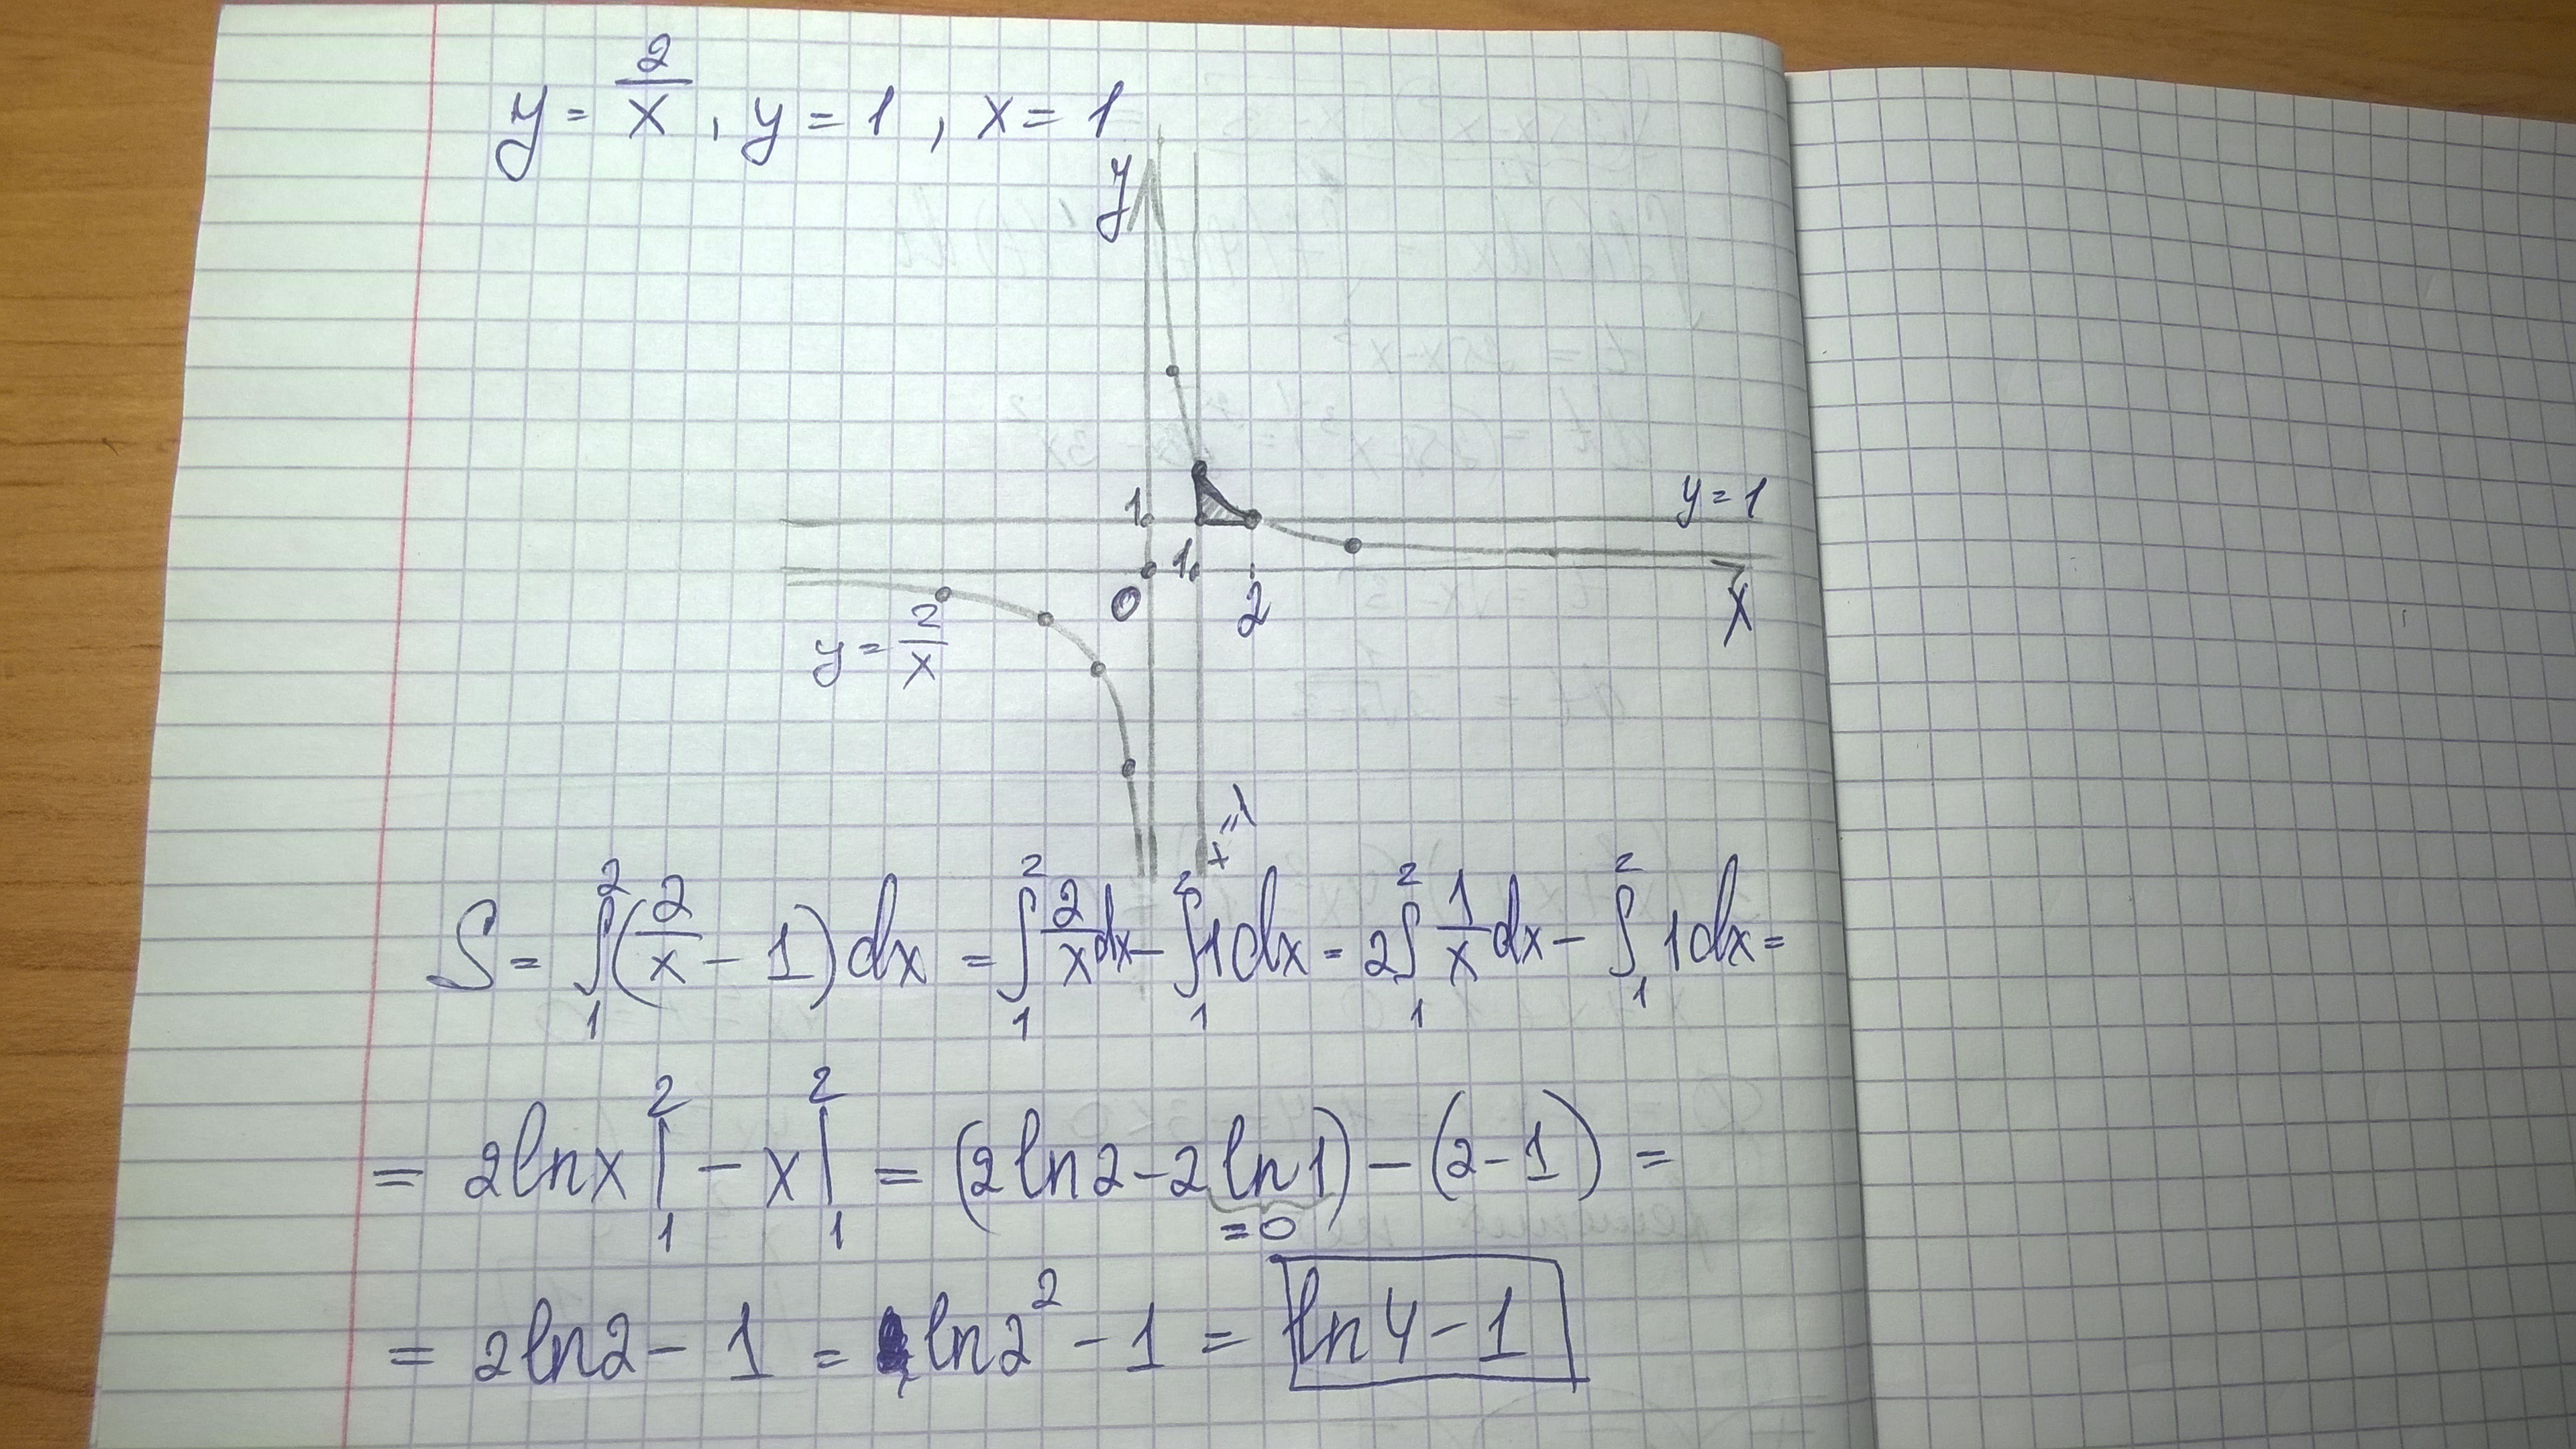 y = 2/x , y = 1 , x = 1
y
1
y = 1
1
0
2
x
y = 2/x
x = 1
S = ∫₁² (2/x − 1) dx = ∫₁² 2/x dx − ∫₁² 1 dx = 2 ∫₁² 1/x dx − ∫₁² 1 dx =
= 2 ln x |₁² − x |₁² = (2 ln 2 − 2 ln 1) − (2 − 1) =
= 0
= 2 ln 2 − 1 = ln 2² − 1 = ln 4 − 1